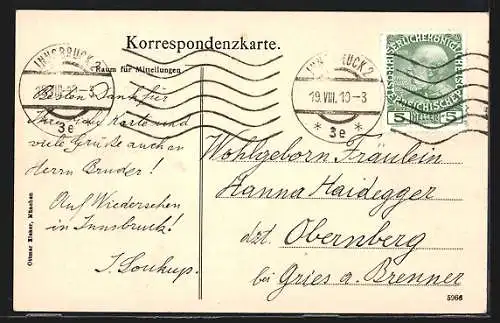 Korrespondenzkarte.
Raum für Mitteilungen
INNSBRUCK 2
19.VIII.10-3
* 3e *
INNSBRUCK 2
19.VIII.10-3
* 3e *
5 HELLER 5
Besten Dank für
Ihre Karte und
viele Grüße auch an
Herrn Bruder!
Auf Wiedersehen
in Innsbruck!
J. Soukup.
Wohlgeborn Fräulein
Hanna Haidegger
dzt. Obernberg
bei Gries a. Brenner
Ottmar Zieher, München
5966